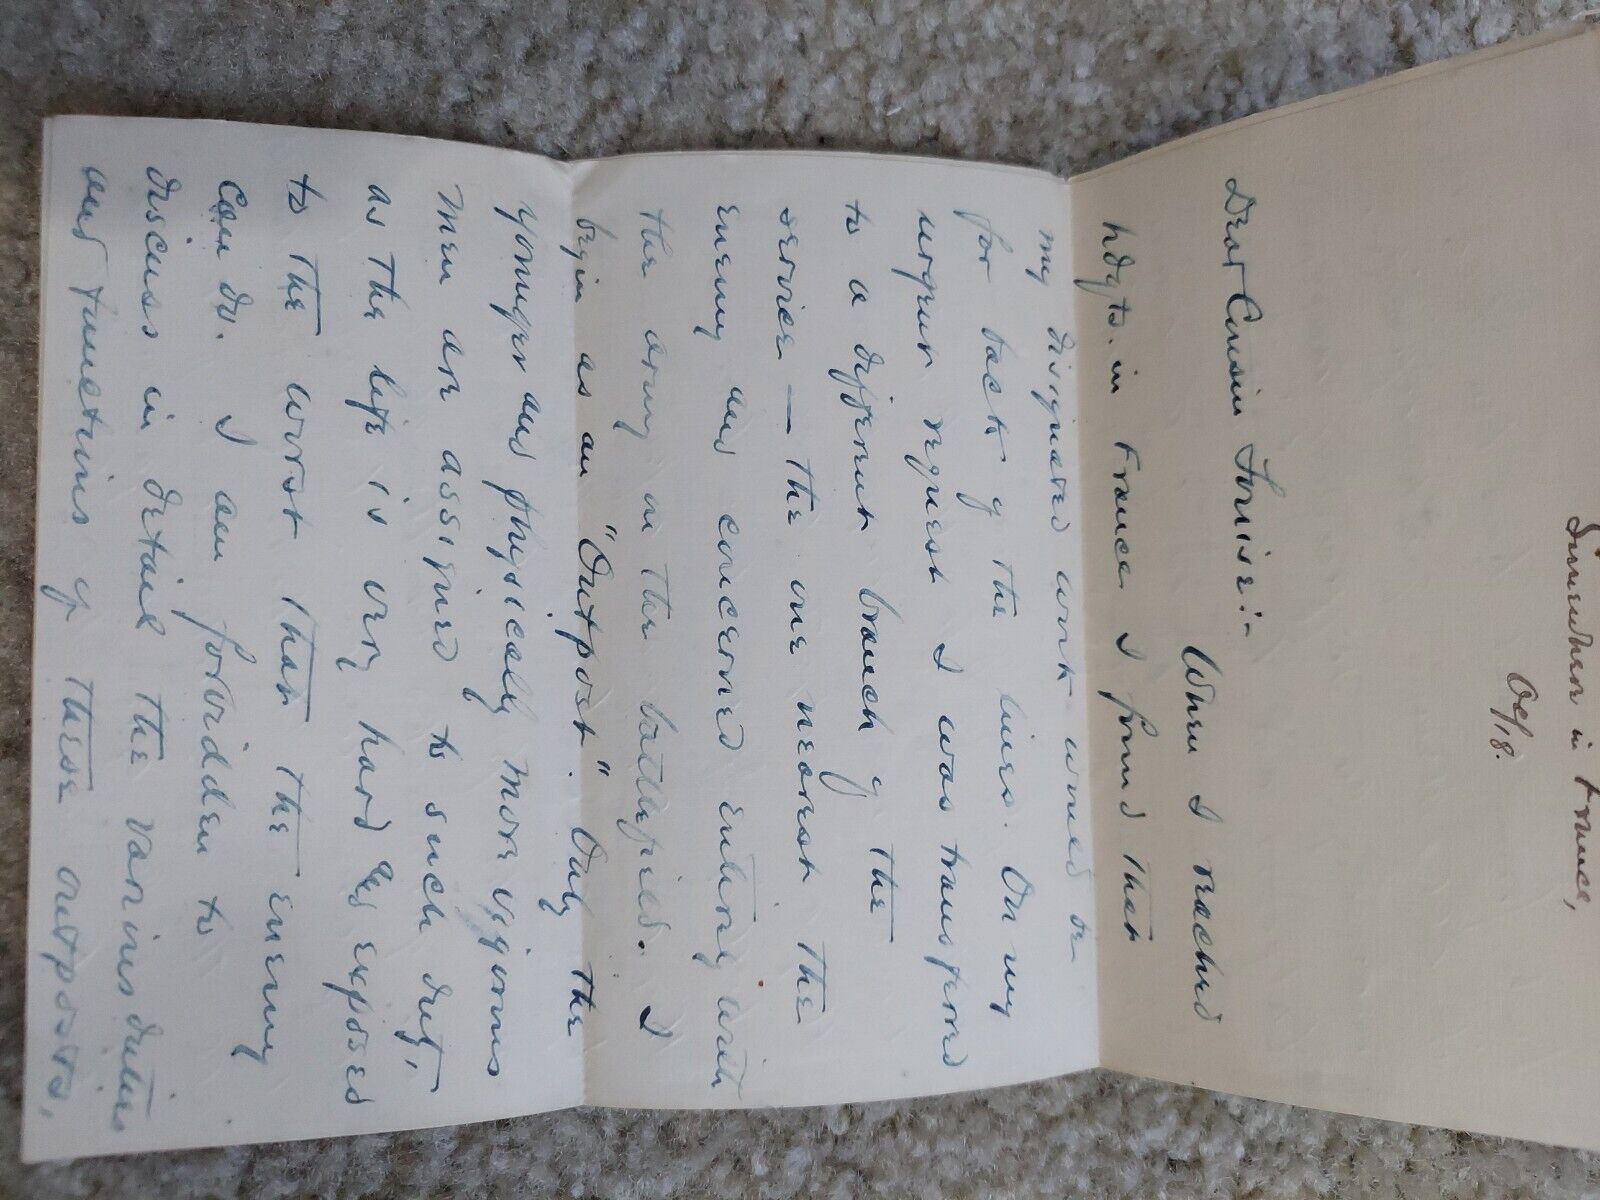 Somewhere in France,
Oct/18.
Dear Cousin Louise:-
When I reached
hdqts. in France I found that
my designated work would be
far back of the lines. On my
urgent request I was transferred
to a different branch of the
service — the one nearest the
enemy and concerned entirely with
the army on the battlefield. I
begin as an "Outpost." Only the
younger and physically more vigorous
men are assigned to such duty,
as the life is very hard & exposed
to the worst that the enemy
can do. I am forbidden to
discuss in detail the various duties
and functions of these outposts,